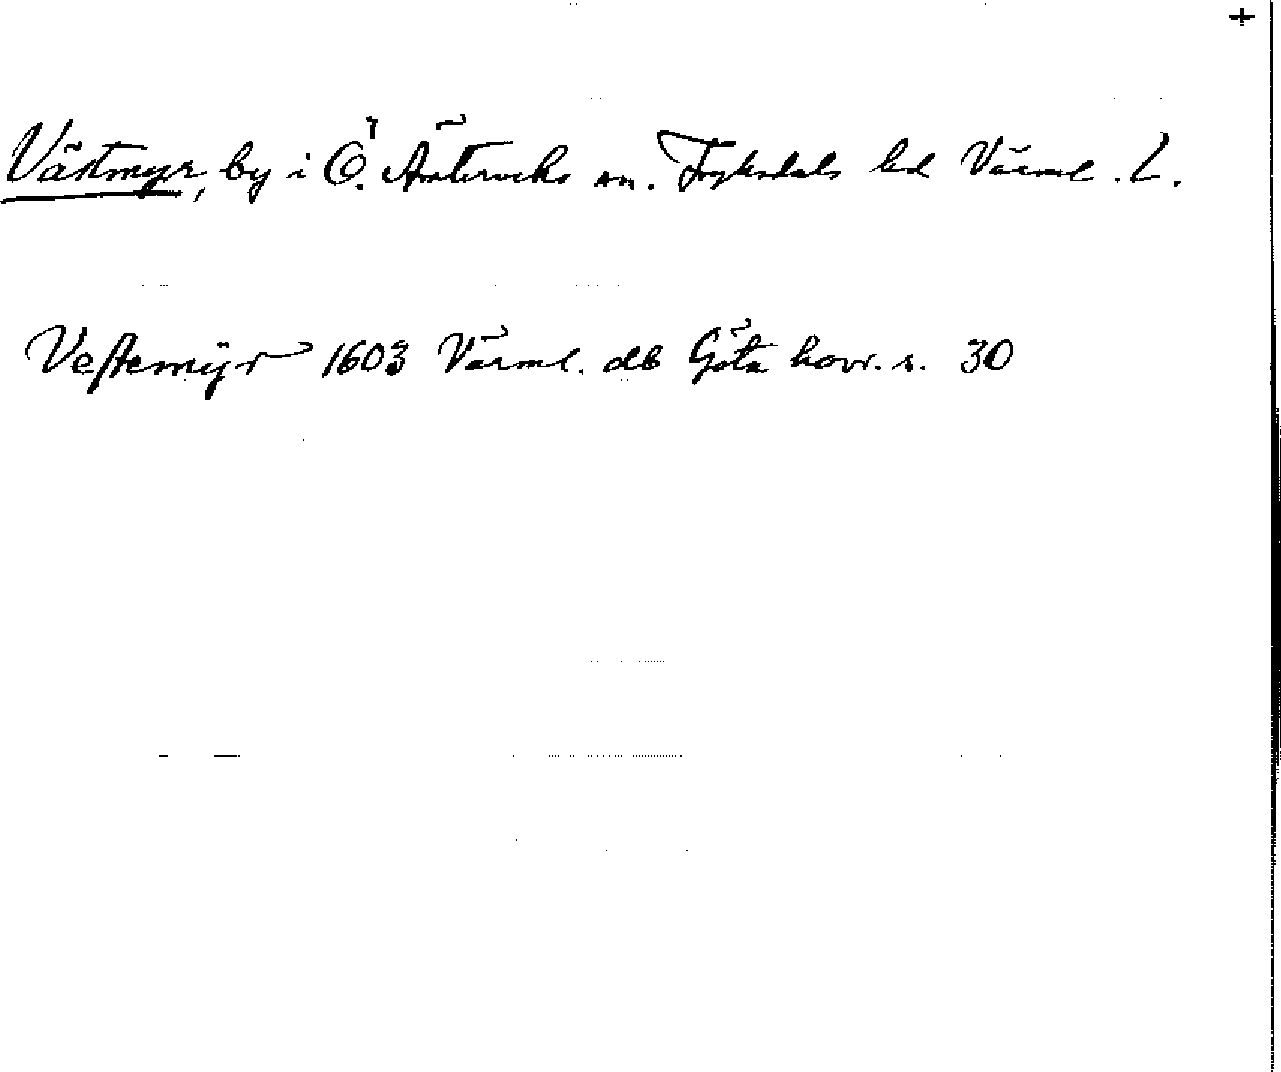 +
Västmyr, by i Ö. Ämterviks sn. Fryksdals hd Värml. L.
Vestemÿr 1603 Värml. db Göta hovr. s. 30